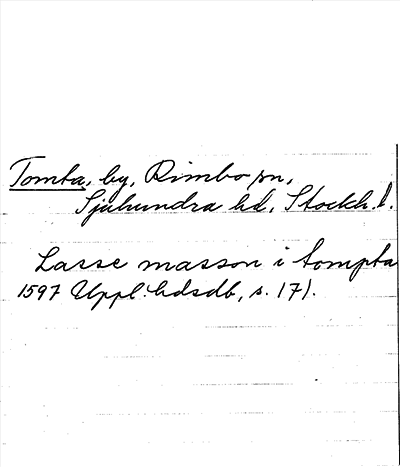 Tomta, by, Rimbo sn,
Sjuhundra hd, Stockh. l.
Lasse masson i tompta
1597 Uppl. hdsdb, s. 171.